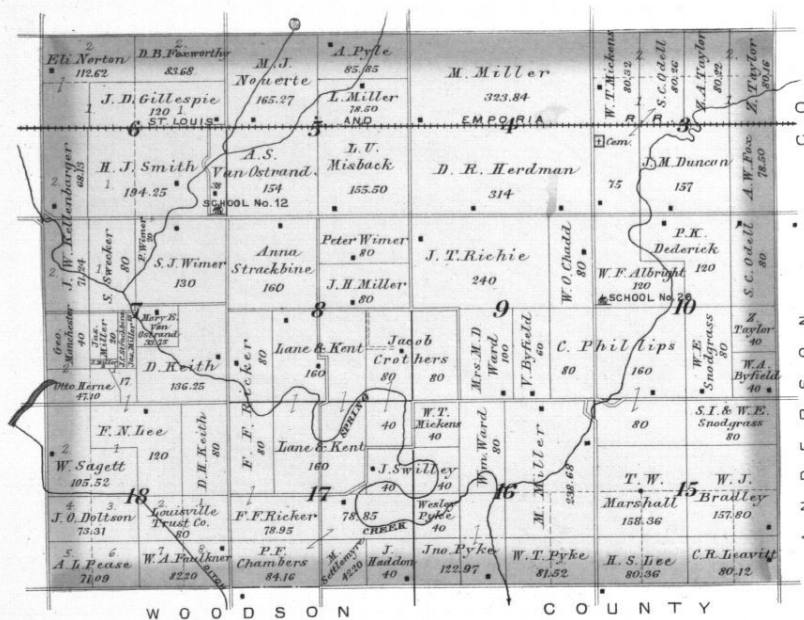 Eli Norton
2
112.62
1
D. B. Foxworthy
2.
83.68
M. J.
Nouerte
165.27
A. Pyle
85.85
L. Miller
78.50
M. Miller
323.84
W. T. Mickens
80.32
S. C. Odell
80.26
Z. A. Taylor
80.22
Z. Taylor
80.16
J. D. Gillespie
120
1
6
ST. LOUIS
5
AND
EMPORIA
4
R R
3
H. J. Smith
194.25
A. S.
Van Ostrand
154
L. U.
Misback
155.50
D. R. Herdman
314
Cem.
75
J. M. Duncan
157
A. W. Fox
78.50
SCHOOL No. 12
J. W. Kellenbarger
68.13
71.24
S. Swecker
80
P. Wimer
20
S. J. Wimer
130
Anna
Strackbine
160
Peter Wimer
80
J. H. Miller
80
J. T. Richie
240
W. O. Chadd
80
P. K.
Dederick
120
W. F. Albright
120
SCHOOL No. 26
S. C. Odell
80
7
8
9
10
Geo.
Manchester
40
Jas.
Miller
20
Mary E.
Van
Ostrand
33.75
D. Keith
136.25
Otto Herne
47.10
17
F. F. Ricker
80
80
Lane & Kent
160
Jacob
Crothers
80
80
Mrs. M. D
Ward
100
V. Byfield
60
C. Phillips
80
160
W. E.
Snodgrass
80
Z.
Taylor
40
W. A.
Byfield
40
F. N. Lee
120
D. H. Keith
80
Lane & Kent
160
SPRING
40
W. T.
Mickens
40
Wm. Ward
80
M. Miller
238.68
80
S. I. & W. E.
Snodgrass
80
W. Sagett
105.52
J. Swilley
40
40
T. W.
Marshall
158.36
W. J.
Bradley
157.80
18
17
16
15
J. O. Doltson
73.31
Louisville
Trust Co.
80
F. F. Ricker
78.95
78.85
CREEK
Wesley
Pyke
40
A. L. Pease
71.09
W. A. Faulkner
82.20
P. F.
Chambers
84.16
M.
Settlemyre
42.20
J.
Haddon
40
Jno. Pyke
122.97
W. T. Pyke
81.52
H. S. Lee
80.36
C. R. Leavitt
80.12
WOODSON COUNTY